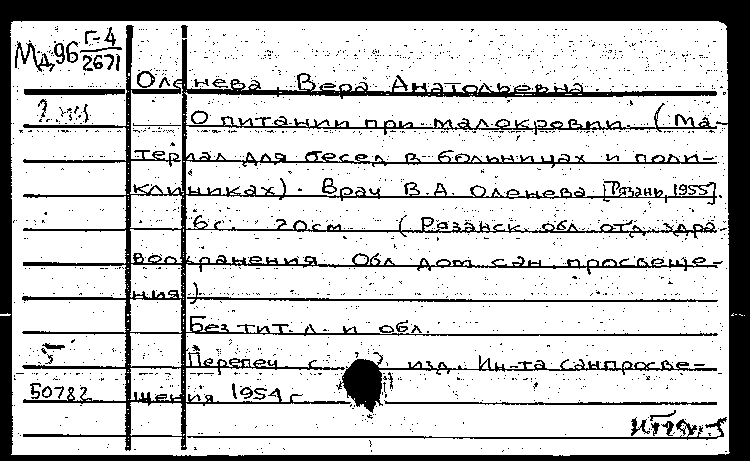 Мд96 Г-4/2671
Оленева, Вера Анатольевна.
2
О питании при малокровии. (Ма-
териал для бесед в больницах и поли-
клиниках). Врач В.А. Оленева [Рязань, 1955].
6 с. 20 см (Рязанск. обл. отд. здра-
воохранения. Обл. дом сан. просвеще-
ния)
Без тит. л. и обл.
5
Перепеч. с изд. Ин-та санпросве-
50782 щения 1954 г.